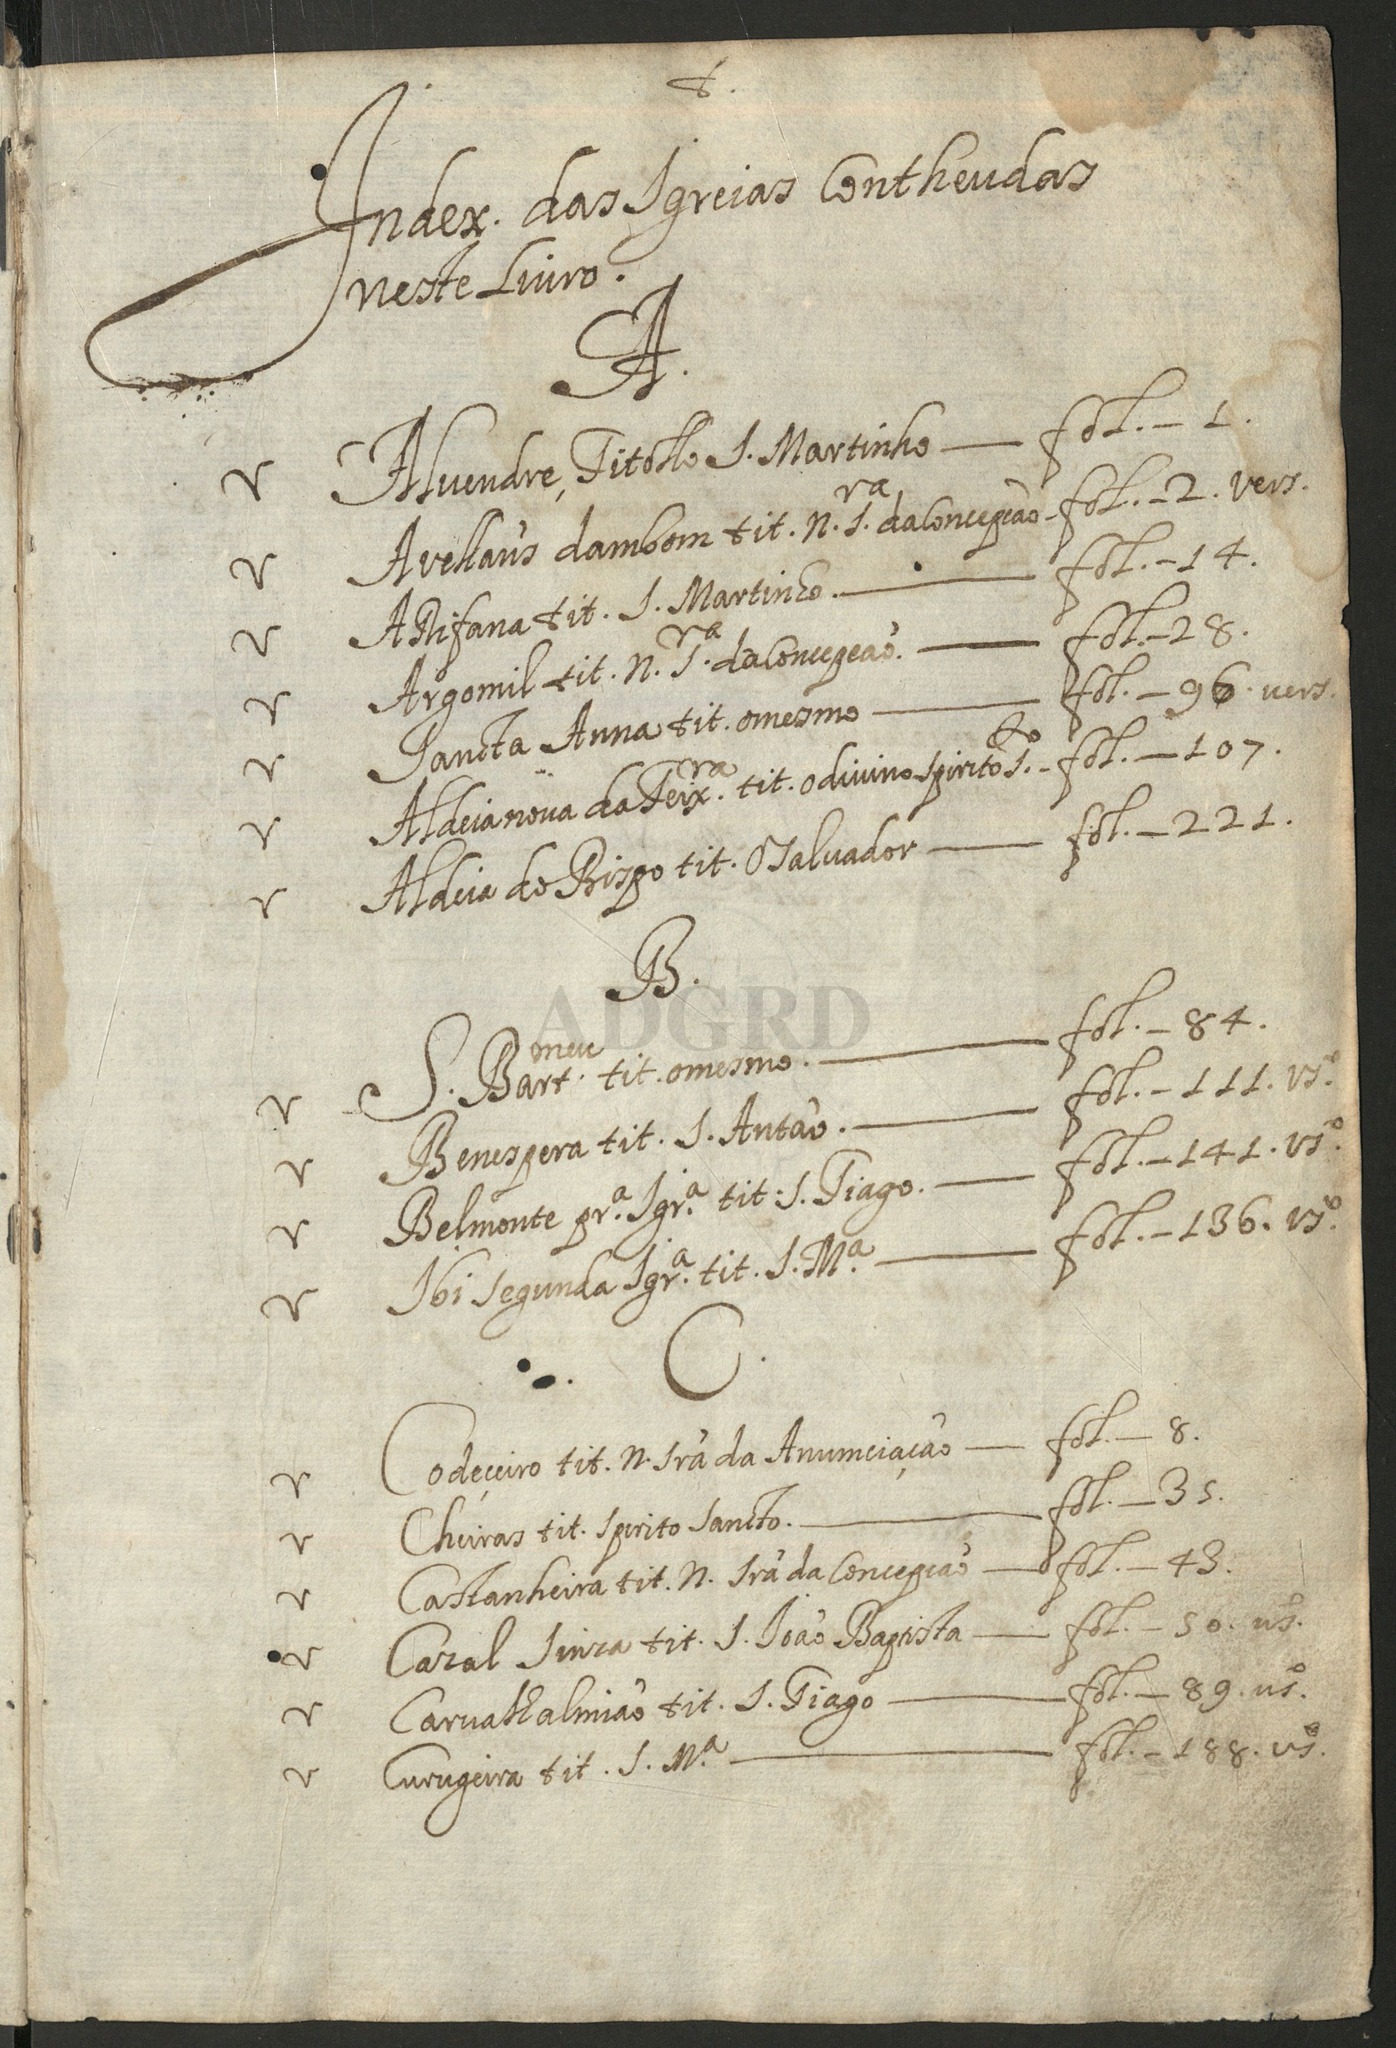 Index. das Igreias Contheudas
neste Liuro.
A.
v Aluendre, Titollo S. Martinho — fol. — 1.
v Avellaũs dambom tit. N. S.ra da Concepção - fol. — 2. vers.
v A Rifana tit. S. Martinho. — fol. — 14.
v Argomil tit. N. S.ra da Concepcaõ. — fol. — 28.
v Sancta Anna tit. omesmo — fol. — 96. vers.
v Aldeia noua da Teix.ra tit. o diuino Spirito S.to - fol. — 107.
v Aldeia do Bispo tit. O Saluador — fol. — 221.
B.
v S. Bart.omeu tit. omesmo. — fol. — 84.
v Benespera tit. S. Antaõ. — fol. — 111. vs.º
v Belmonte pr.ª Igr.ª tit. S. Tiago. — fol. — 141. vs.º
v Ibi segunda Igr.ª tit. S. M.ª — fol. — 136. vs.º
C.
v Codeçeiro tit. N. Srã da Anumciação — fol. — 8.
v Cheiras tit. Spirito Sancto. — fol. — 35.
v Castanheira tit. N. Srã da Concepcaõ — fol. — 43.
v Cazal Sinza tit. S. Ioaõ Baptista — fol. — 50. vs.º
v Carualhalmiaõ tit. S. Tiago — fol. — 89. vs.º
v Curugeira tit. S. M.ª — fol. — 188. vs.º
ADGRD